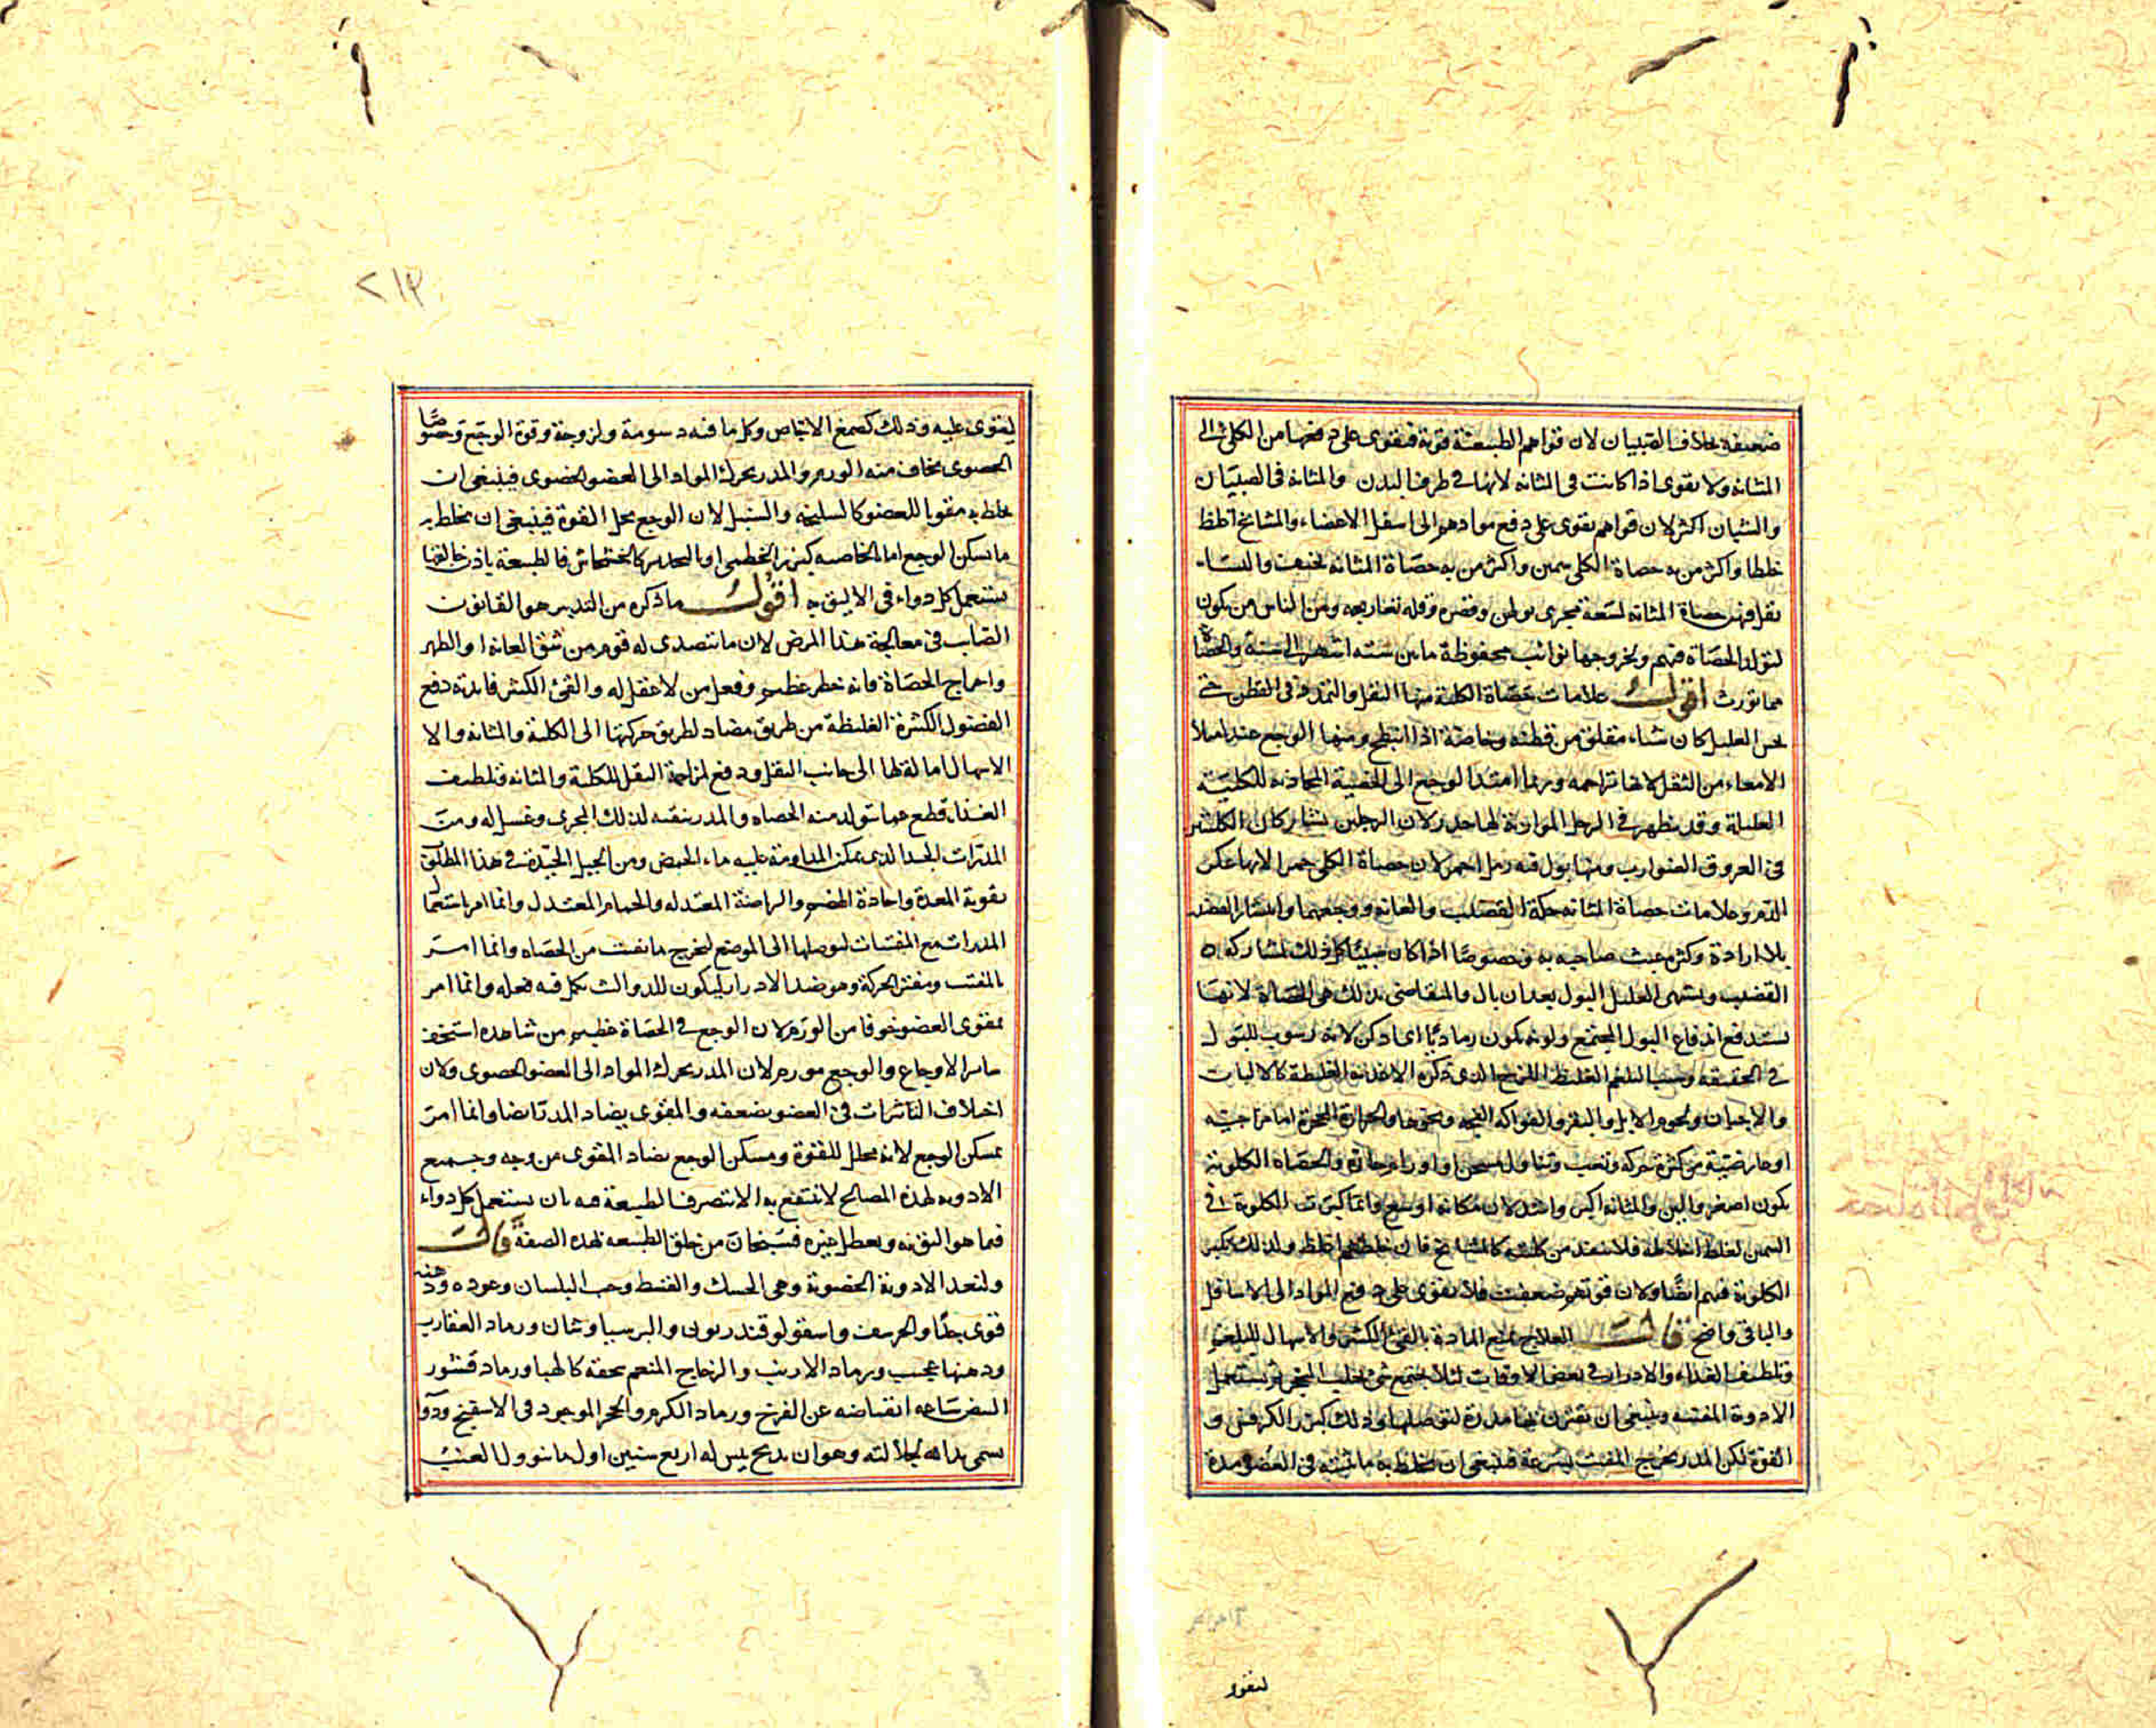 ضعيفة بخلاف الصبيان لان قواهم الطبيعية قوية فتقوى على دفعها من الكلى الى
المثانة ولا تقوى اذا كانت فى المثانة لانها فى طرف البدن والمثانة فى الصبيان
والشبان اكثر لان قواهم تقوى على دفع موادهم الى اسفل الاعضاء والمشايخ اغلظ
خلطا واكثر من به حصاة الكلى سمين واكثر من به حصاة المثانة نحيف والنساء
تقل فيهن حصاة المثانة لسعة مجرى بولهن وقصره وقلة تعاريجه ومن الناس من يكون
لتولد الحصاة فيهم ولخروجها نوائب محفوظة ما بين ستة اشهر الى سنة والحصاة
مما تورث اقول علامات حصاة الكلية منها الثقل والتمدد فى القطن حتى
يحس العليل كان شياء معلق من قطنه وخاصة اذا انبطح ومنها الوجع عند امتلا
الامعاء من الثقل لانها تزاحمه وربما امتد الوجع الى الخصية المحاذية للكلية
العليلة وقد يظهر فى الرجل الموازية لها خدر لان الرجلين يشاركان الكليتين
فى العروق الضوارب ومنها بول فيه رمل احمر لان حصاة الكلى حمر الانها عكر
الدم وعلامات حصاة المثانة حكة القضيب والعانة ووجعهما وانتشار القضيب
بلا ارادة وكثرة عبث صاحبه به وخصوصا اذا كان صبيا كل ذلك لمشاركة
القضيب ويشتهى العليل البول بعد ان بال والمتقاضى بذلك هى الحصاة لانها
تستدفع اندفاع البول المجتمع ولونه يكون رماديا اى ادكن لانه رسوب للبول
فى الحقيقة وسببه البلغم الغليظ اللزج الذى ذكره الاغذية الغليظة كالالبان
والاجبان ولحوم الابل والبقر والفواكه الفجة ونحوها والحرارة المحجرة اما مزاجية
او عارضية من كثرة حركة وتعب وتناول مسخن او اورام حارة والحصاة الكلوية
يكون اصغر والين والمثانة اكبر واشد لان مكانه اوسع وانما كثرت الكلوية فى
السمين لغلظ اخلاطه فلا تنفذ من كليته كالمشايخ فان خلطهم اغلظ ولذلك تكثر
الكلوية فيهم ايضا ولان قوتهم ضعيفة فلا تقوى على دفع المواد الى الاسافل
والباقى واضح قال العلاج قطع المادة بالقى الكثير والاسهال للبلغم
وتلطيف الغذاء والادرار فى بعض الاوقات لئلا يجتمع شى يغلب التحجر ثم يستعمل
الادوية المفتتة وينبغى ان تقترن بها مدرة لتوصلها وذلك كبزر الكرفس و
الفوة لكن المدر يخرج المفتت بسرعة فينبغى ان تخلط به ما تثبته فى العضو مدة
لتقوى
٢١٣
ليقوى عليه وذلك كصمغ الاجاص وكل ما فيه دسومة ولزوجة وقوة الوجع وخصوصا
الحصوى يخاف منه الورم والمدر يحرك المواد الى العضو الحصوى فينبغى ان
يخلط به مقويا للعضو كالسليخة والسنبل لان الوجع يحل القوة فينبغى ان يخلط به
ما يسكن الوجع اما بالخاصية كبزر الخطمى او بالتخدير كالخشخاش فالطبيعة باذن خالقها
تستعمل كل دواء فى الاليق به اقول ما ذكره من التدبير هو القانون
الصايب فى معالجة هذا المرض لان ما يتصدى له قوم من شق العانة او الظهر
واخراج الحصاة فانه خطر عظيم وفعل من لا عقل له والقئ الكثير فايدته دفع
الفضول الكثيرة الغليظة من طريق مضاد لطريق حركتها الى الكلية والمثانة والا
الاسهال امالة لها الى جانب الثقل ودفع لمزاحمة الثقل للكلية والمثانة وتلطيف
الغذاء قطع عما يتولد منه الحصاة والمدر ينقيه لذلك المجرى وغسل له ومن
المدرات الجيدة الذى يمكن المداومة عليه ماء الحمص ومن الحيل الجيدة فى هذا المطلوب
تقوية المعدة واجادة الهضم والرياضة المعتدلة والحمام المعتدل وانما امر باستعمال
المدرات مع المفتتات لتوصلها الى الموضع لتخرج ما تفتت من الحصاة وانما امر
بالمفتت ومفتر الحركة وهو ضد الادرار ليكون للدواء لبث يكمل فيه فعله وانما امر
بمقوى العضو خوفا من الورم لان الوجع فى الحصاة عظيم من شاهده استخف
ساير الاوجاع والوجع مورم لان المدر يحرك المواد الى العضو الحصوى ولان
اختلاف التاثيرات فى العضو يضعفه والمقوى يضاد المدر ايضا وانما امر
بمسكن الوجع لانه محلل للقوة ومسكن الوجع يضاد المقوى من وجه وجميع
الادوية لهذه المصالح لا تنتفع به الا بتصرف الطبيعة فيه بان يستعمل كل دواء
فيما هو اليق به ويعطل غيره فسبحان من خلق الطبيعة لهذه الصفة قال
ولنعد الادوية الحصوية وهى الحسك والقسط وحب البلسان وعوده ودهنه
قوى جدا والحرشف واسقولوقندريون والبرسياوشان ورماد العقارب
ودهنها عجيب ورماد الارنب والزجاج المنعم سحقه كالهبا ورماد قشور
البيض ساعة انقباضه عن الفرخ ورماد الكرم والحجر الموجود فى الاسفنج ودواء
يسمى يد الله لجلالته وهو ان يذبح تيس له اربع سنين اول ما يتلون العنب